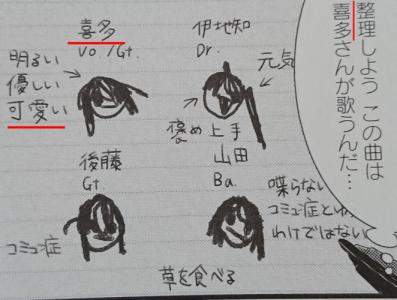 整理しよう この曲は
喜多さんが歌うんだ…
喜多
Vo./Gt.
明るい
優しい
可愛い
伊地知
Dr.
元気
褒め上手
後藤
Gt
コミュ症
山田
Ba.
喋らない
コミュ症という
わけではない
草を食べる